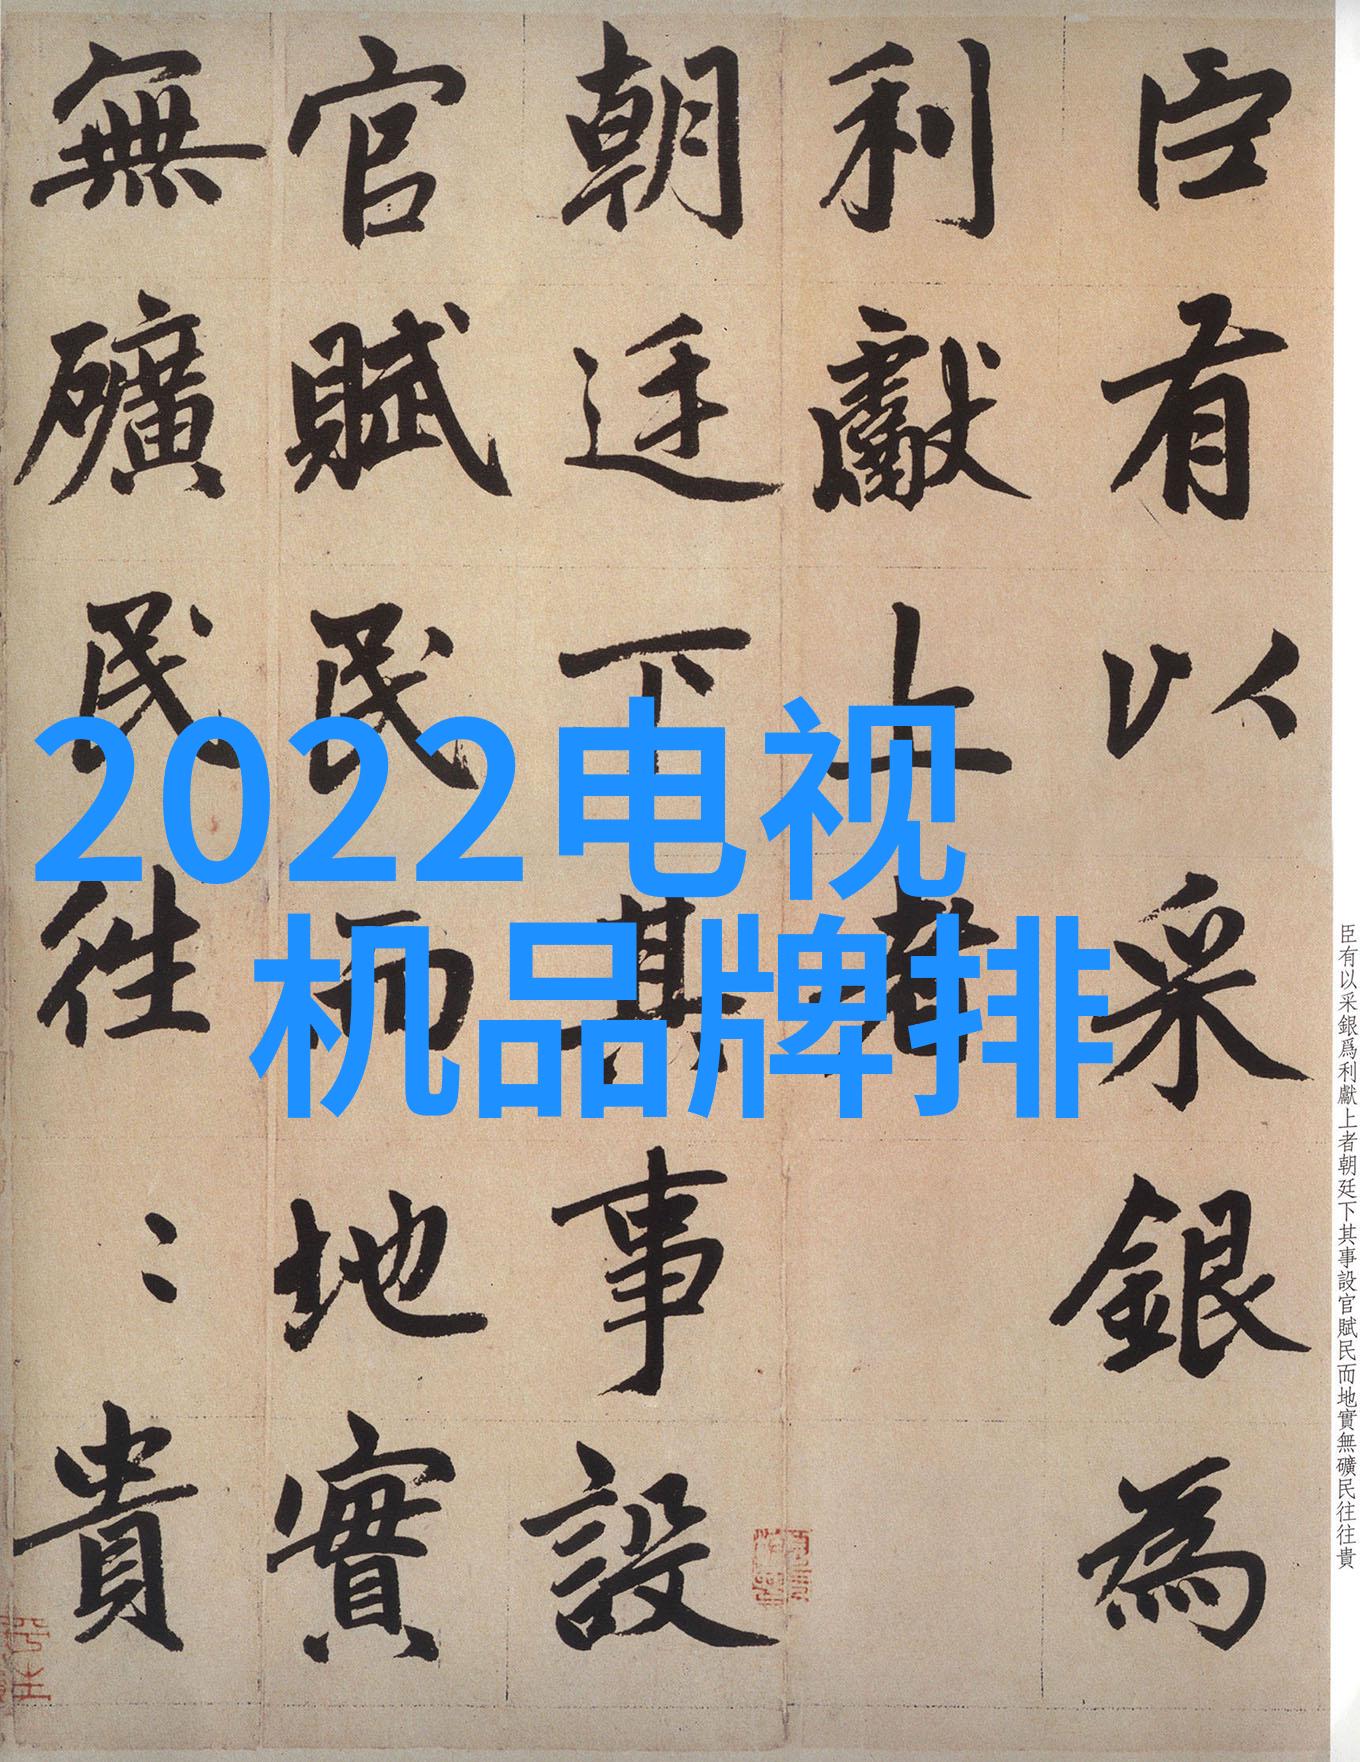 臣有以采銀為
利獻上者
朝廷下其事設
官賦民而地實
無礦民往〻貴
2022电视
机品牌排
臣有以采銀爲利獻上者朝廷下其事設官賦民而地實無礦民往往貴